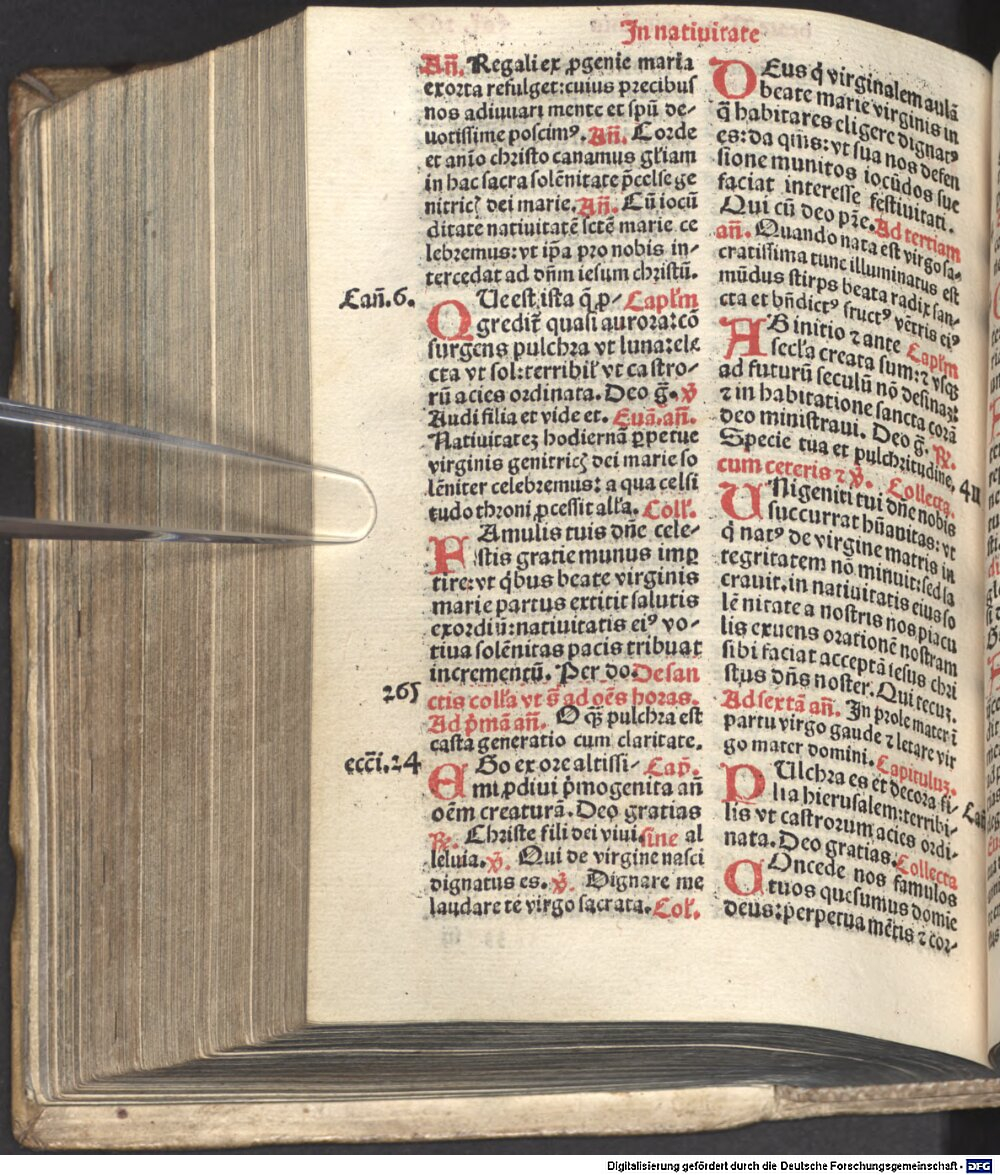 In natiuitate
Añ. Regali ex ꝓgenie maria
exorta refulget: cuius precibus
nos adiuuari mente et spũ de-
uotissime poscimꝰ. Añ. Corde
et anio christo canamus gl'iam
in hac sacra solẽnitate p̃celse ge
nitricꝭ dei marie. Añ. Cũ iocũ
ditate natiuitatẽ sctẽ marie ce
lebremus: vt ip̃a pro nobis in-
tercedat ad dñm iesum christũ.
Cañ. 6.
QUe est ista q̃ ꝓ- Capl'm
gredit̃ quasi aurora: cõ
surgens pulchra vt luna: ele
cta vt sol: terribil' vt castro-
rũ acies ordinata. Deo g̃. v̄
Audi filia et vide et. Euã. añ.
Natiuitatez hodiernã ꝑpetue
virginis genitricꝭ dei marie so
lẽniter celebremus: a qua celsi
tudo throni ꝓcessit all'a. Coll'.
FAmulis tuis dñe cele-
stis gratie munus imꝑ
tire: vt qͥbus beate virginis
marie partus extitit salutis
exordiũ: natiuitatis eiꝰ vo-
tiua solẽnitas pacis tribuat
incrementũ. Per do. De san
265
ctis coll'a vt s̃ ad oẽs horas.
Ad pͥmã añ. O qͣ̃ pulchra est
casta generatio cum claritate.
eccĩ. 24
EGo ex ore altissi- Cap̃.
mi ꝓdiui pͥmogenita añ
oẽm creaturã. Deo gratias
℞. Christe fili dei viui sine al
leluia. v̄. Qui de virgine nasci
dignatus es. v̄. Dignare me
laudare te virgo sacrata. Col'.
DEus q̃ virginalem aulã
beate marie virginis in
q̃ habitares eligere dignatꝰ
es: da qm̃s: vt sua nos defen
sione munitos iocũdos sue
faciat interesse festiuitati.
Qui cũ deo pr̃e. Ad tertiam
añ. Quando nata est virgo sa-
cratissima tunc illuminatus est
mũdus stirps beata radix san-
cta et bñdictꝰ fructꝰ vẽtris eiꝰ
AB initio ⁊ ante Capl'm
secl'a creata sum: ⁊ vsqꝫ
ad futurũ seculũ nõ desinaꝫ:
⁊ in habitatione sancta corã
deo ministraui. Deo g̃. ℞.
Specie tua et pulchritudine,
cum ceteris ⁊ v̄. Collecta.
UNigeniti tui dñe nobis
succurrat hũanitas: vt
q̃ natꝰ de virgine matris in
tegritatem nõ minuit: sed sa
crauit. in natiuitatis eius so
lẽnitate a nostris nos piacu
lis exuens orationẽ nostram
sibi faciat acceptã iesus chri
stus dñs noster. Qui tecuꝫ.
Ad sextã añ. In prole mater ĩ
partu virgo gaude ⁊ letare vir
go mater domini. Capituluꝫ.
PUlchra es et decora fi-
lia hierusalem: terribi-
lis vt castrorum acies ordi-
nata. Deo gratias. Collecta
COncede nos famulos
tuos quesumus domie
deus: perpetua mẽtis ⁊ cor-
Digitalisierung gefördert durch die Deutsche Forschungsgemeinschaft - DFG